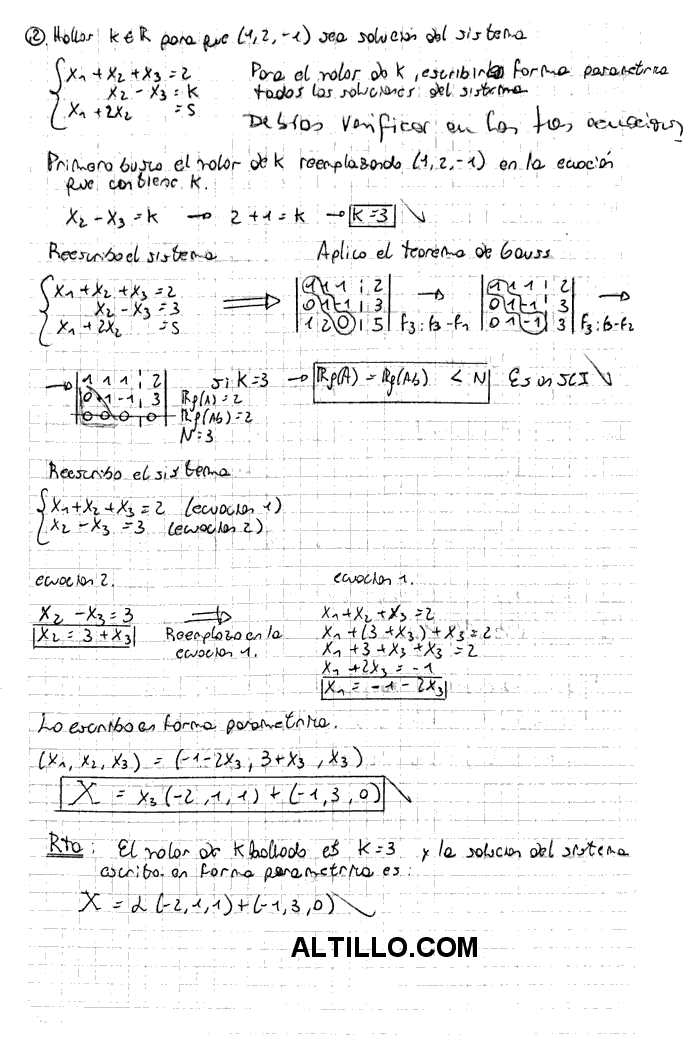 ② Hallar k ∈ R para que (1, 2, -1) sea solución del sistema
{ X1 + X2 + X3 = 2
X2 - X3 = K
X1 + 2X2 = 5
Para el valor de k, escribir en forma parametrica
todas las soluciones del sistema
Debías verificar en las tres ecuaciones
Primero busco el valor de k reemplazando (1, 2, -1) en la ecuación
que contiene k.
X2 - X3 = k → 2 + 1 = k → k = 3
Reescribo el sistema
Aplico el teorema de Gauss
{ X1 + X2 + X3 = 2
X2 - X3 = 3
X1 + 2X2 = 5
⇒
1 1 1 | 2
0 1 -1 | 3
1 2 0 | 5
F3: F3 - F1
→
1 1 1 | 2
0 1 -1 | 3
0 1 -1 | 3
F3: F3 - F2
→
→
1 1 1 | 2
0 1 -1 | 3
0 0 0 0
si k = 3 → Rg(A) = Rg(Ab) < N Es un SCI
Rg(A) = 2
Rg(Ab) = 2
N = 3
Reescribo el sistema
{ X1 + X2 + X3 = 2 (ecuación 1)
X2 - X3 = 3 (ecuación 2)
ecuación 2.
X2 - X3 = 3
X2 = 3 + X3
⇒
Reemplazo en la
ecuación 1.
ecuación 1.
X1 + X2 + X3 = 2
X1 + (3 + X3) + X3 = 2
X1 + 3 + X3 + X3 = 2
X1 + 2X3 = -1
X1 = -1 - 2X3
Lo escribo en forma parametrica.
(X1, X2, X3) = (-1-2X3, 3+X3, X3)
X = X3 (-2, 1, 1) + (-1, 3, 0)
Rta: El valor de K hallado es K = 3 y la solucion del sistema
escrito en forma parametrica es:
X = α (-2, 1, 1) + (-1, 3, 0)
ALTILLO.COM